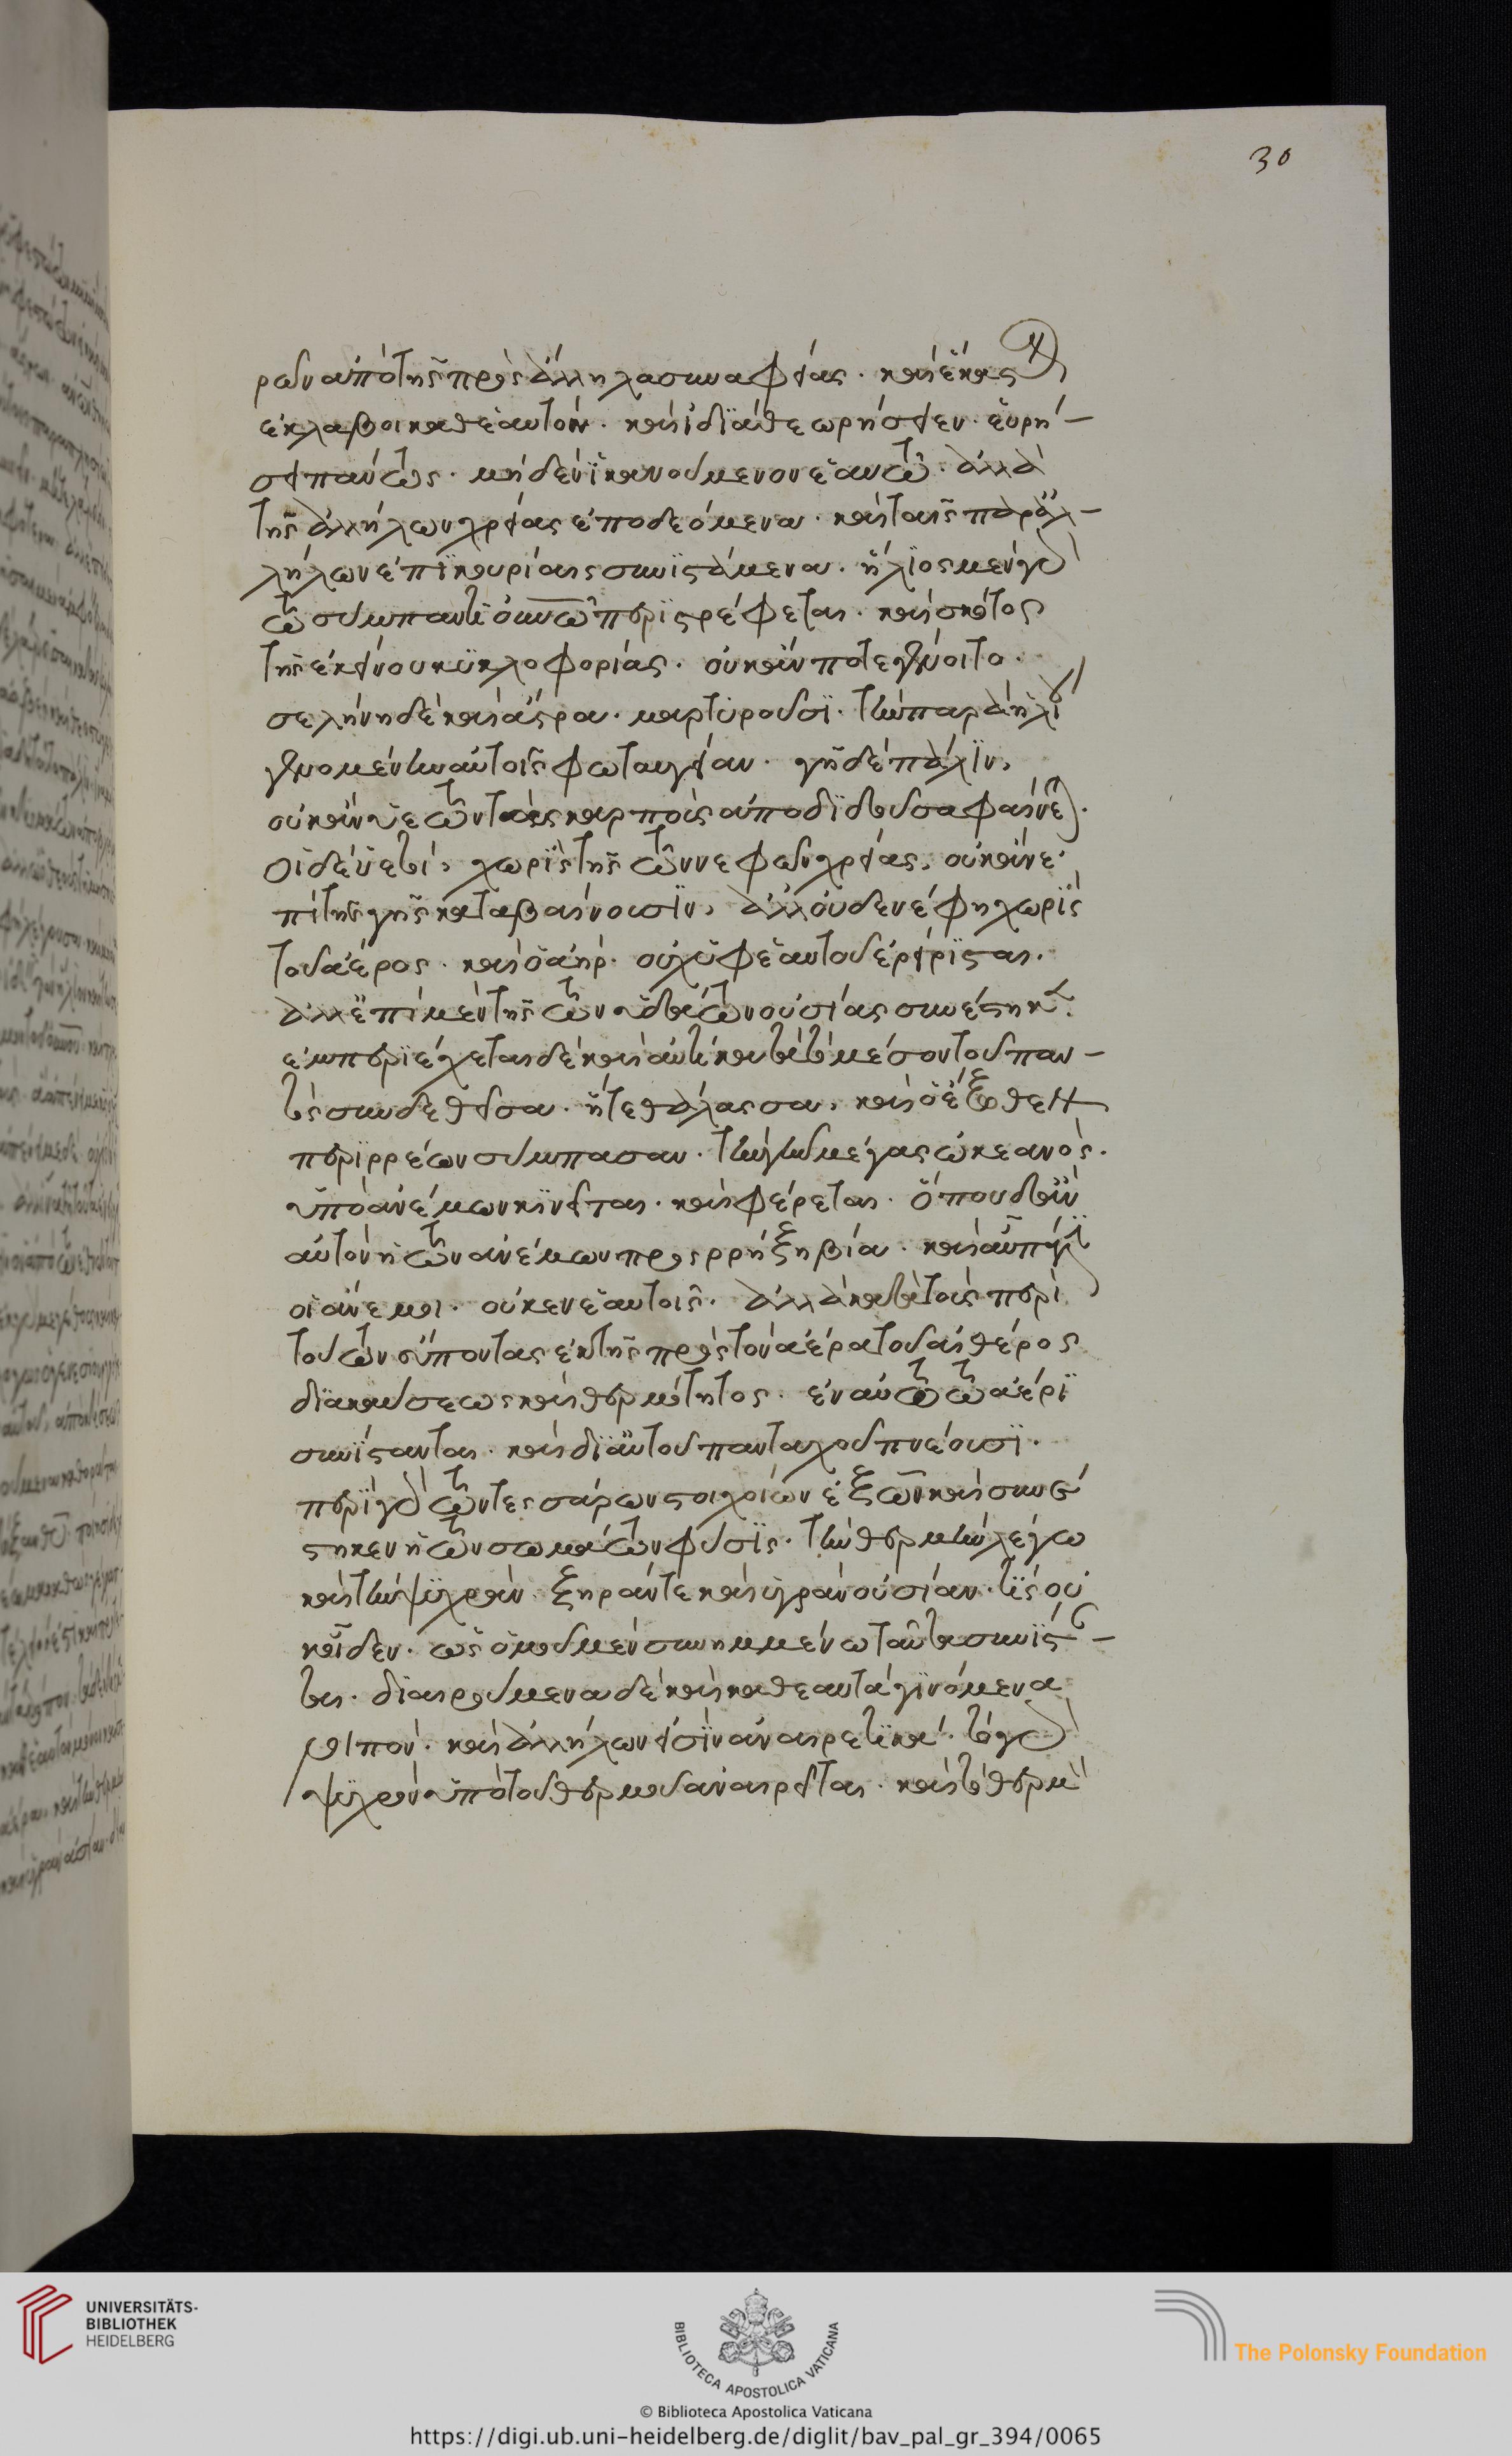 30
ρῶν ἀπὸ τῆς πρὸς ἄλληλα συναφείας· καὶ ἕκαστον
ἐκλάβοι καθ' ἑαυτὸν· καὶ ἰδία θεωρήσειεν· εὑρή-
σει πάντως· μηδὲν ἱκανούμενον ἑαυτῷ· ἀλλὰ
τῆς ἀλλήλων χρείας ἐποδεόμενα· καὶ ταῖς παρ' ἀλ-
λήλων ἐπικουρίαις συνιστάμενα· ἥλιος μὲν γὰρ
τῷ σύμπαντι οὐνῷ περιστρέφεται· καὶ σκότος
τῆς ἐκείνου κυκλοφορίας· οὐκ ἄν ποτε γένοιτο·
σελήνη δὲ καὶ ἄστρα· μαρτυροῦσι· τὴν παρ' ἡλίου
γενομένην αὐτοῖς φωταυγείαν· γῆ δὲ πάλιν,
οὐκ ἂν ὑετῶν τοὺς καρποὺς ἀποδιδοῦσα φαίνεται·
οἱ δὲ ὑετοί, χωρὶς τῆς τῶν νεφῶν χρείας, οὐκ ἂν ἐ
πὶ τῆς γῆς καταβαίνουσιν, ἀλλ' οὐδὲ νέφη χωρὶς
τοῦ ἀέρος· καὶ ὁ ἀὴρ· οὐχ ὑφ' ἑαυτοῦ ἐρείρισται·
ἀλλ' ἐπὶ μὲν τῆς τῶν ὑδάτων οὐσίας συνέστηκεν·
ἐμπεριέχεται δὲ καὶ αὐτὴ κατὰ τὸ μέσον τοῦ παν-
τὸς συνδεθεῖσα· ἥ τε θάλασσα, καὶ ὁ ἔξωθεν
περιρρέων σύμπασαν· τὴν γῆν μέγας ὠκεανὸς·
ὑπὸ ἀνέμων κινεῖται· καὶ φέρεται· ὅπου δ' ἂν
αὐτὸν ἡ τῶν ἀνέμων προσρρήξῃ βία· καὶ αὖ πάλιν
οἱ ἄνεμοι· οὐκ ἐν ἑαυτοῖς· ἀλλὰ κατὰ τοὺς περὶ
τούτων εἰπόντας ἐκ τῆς πρὸς τὸν ἀέρα τοῦ αἰθέρος
διακαύσεως καὶ θερμότητος· ἐν αὐτῷ τῷ ἀέρι
συνίστανται· καὶ δι' αὐτοῦ πανταχοῦ πνέουσι·
περὶ γὰρ τῶν τεσσάρων στοιχείων ἐξ ὧν καὶ συνέ
στηκεν ἡ τῶν σωμάτων φύσις· τὴν θερμὴν λέγω
καὶ τὴν ψυχρὰν· ξηράν τε καὶ ὑγρὰν οὐσίαν· τίς οὐ
κ οἶδεν· ὡς ὁμοῦ μὲν συνημμένως ταῦτα συνίστα-
ται· διαιρούμενα δὲ καὶ καθ' ἑαυτὰ γινόμενα
λοιπὸν· καὶ ἀλλήλων εἰσὶν ἀναιρετικά· τό γὰρ
ψυχρὸν ὑπὸ τοῦ θερμοῦ ἀναιρεῖται· καὶ τὸ θερμὸ
UNIVERSITÄTS-
BIBLIOTHEK
HEIDELBERG
BIBLIOTECA APOSTOLICA VATICANA
The Polonsky Foundation
© Biblioteca Apostolica Vaticana
https://digi.ub.uni-heidelberg.de/diglit/bav_pal_gr_394/0065